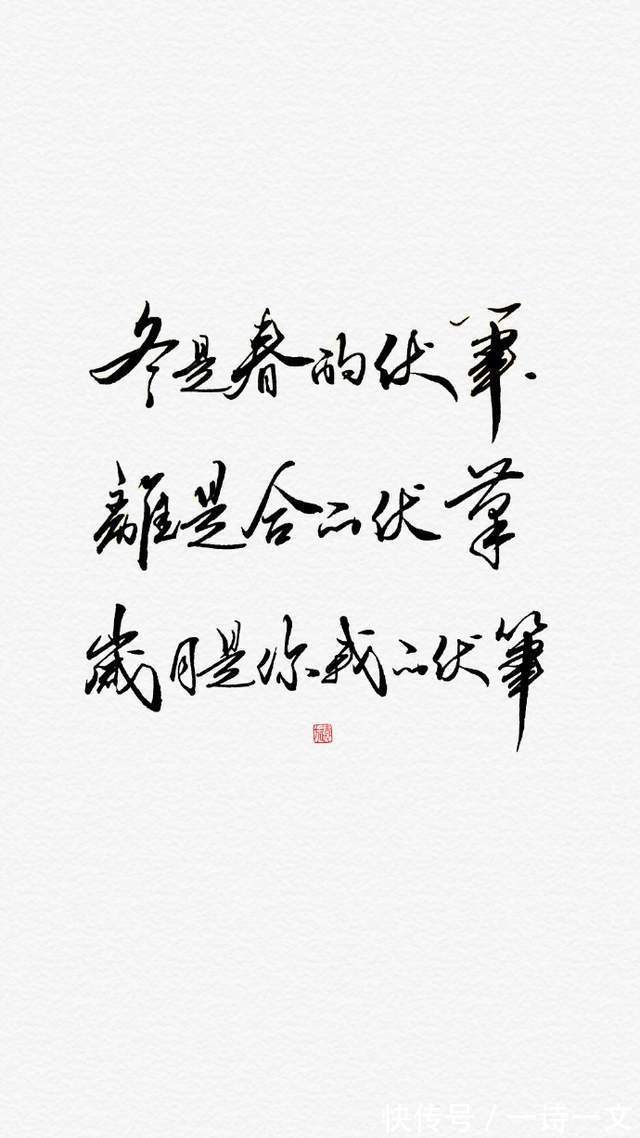 冬是春的伏筆
離是合的伏筆
歲月是你我的伏筆
快传号/一诗一文